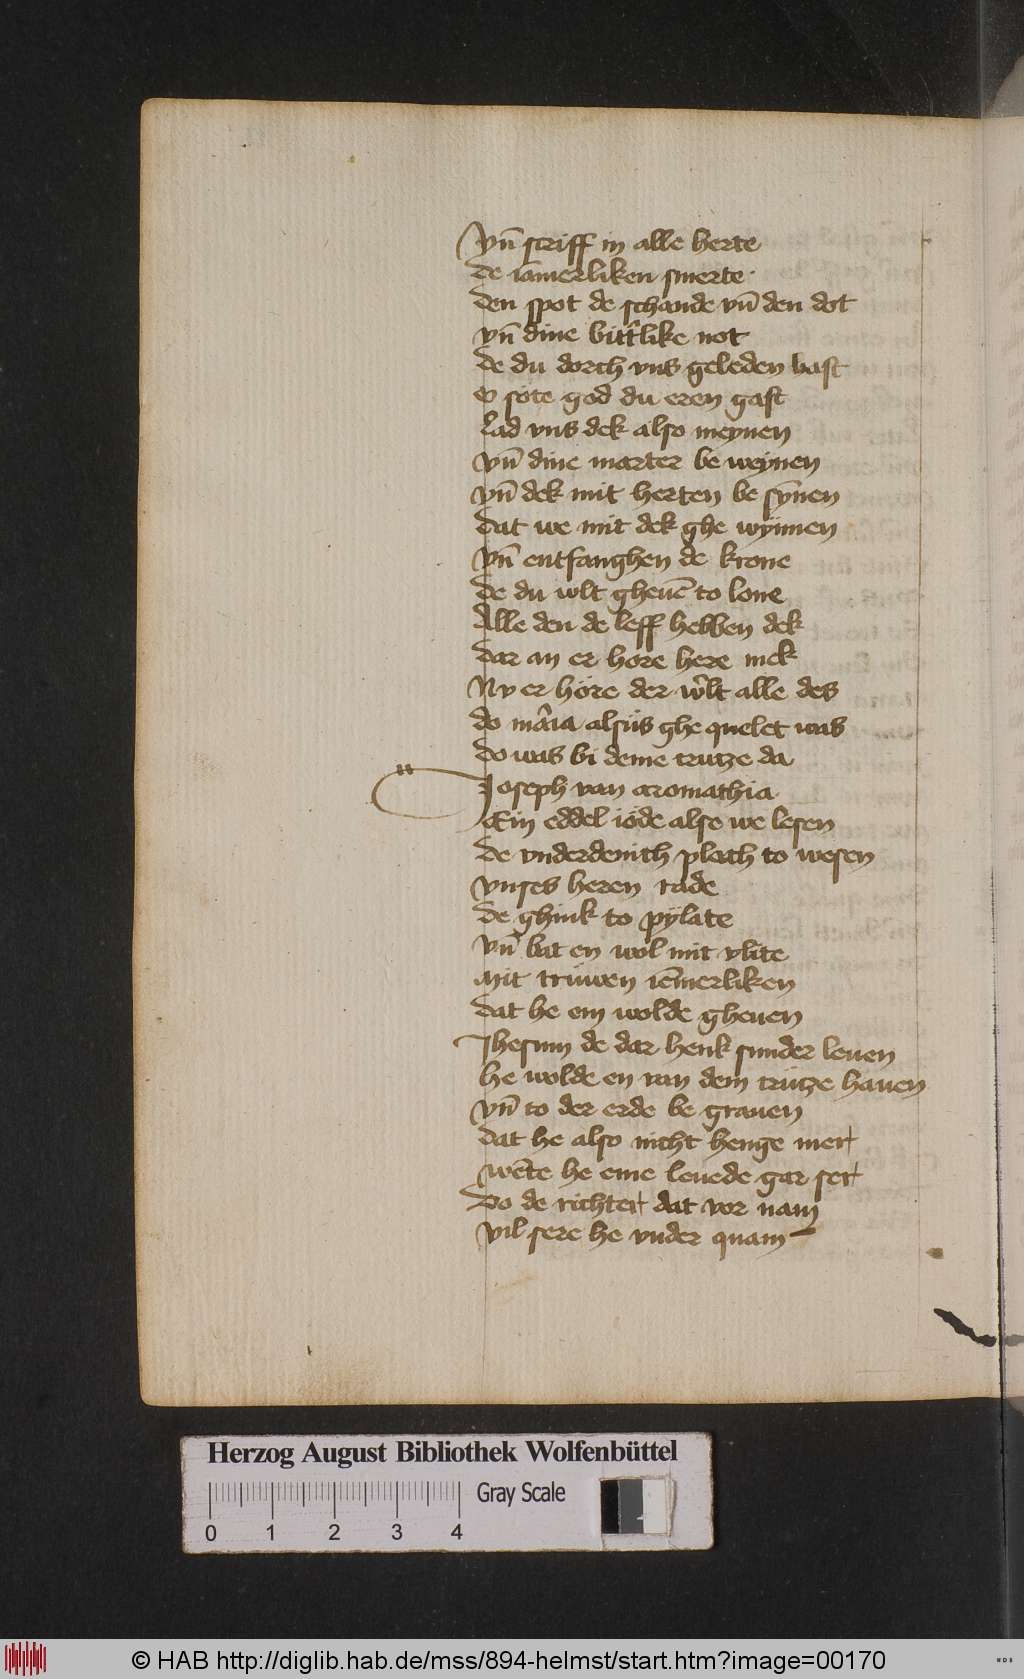 Vn̄ scriff in alle herte
de iam̄erliken smerte
den spot de schande vn̄ den dot
vn̄ dine bitt᷑like not
de du dorch vns geleden hast
O sote god du eren gast
Lad vns dek also meynen
vn̄ dine marter be weynen
vn̄ dek mit herten be syn̄en
dat we mit dek ghe wynnen
vn̄ entfanghen de krone
de du wlt gheuē to lone
Alle den de leff hebben dek
dar an er hore here mek
Nv er höre der w᷑lt alle des
do ma᷑ia alsus ghe quelet was
do was bi deme crutze da
Joseph van aromathia
Ein eddel iöde alse we lesen
de vnderdenich plach to wesen
vnses heren rade
de ghink to pylate
vn̄ bat en wol mit vlite
Mit truwen iēmerliken
dat he em wolde gheuen
Jhesum de dar henk sunder leuen
he wolde en van dem crutze hauen
vn̄ to der erde be grauen
dat he also nicht henge mer
wēte he eme leuede gar ser
Do de richter dat vor nam
vil sere he vnder quam
Herzog August Bibliothek Wolfenbüttel
Gray Scale
0 1 2 3 4
© HAB http://diglib.hab.de/mss/894-helmst/start.htm?image=00170